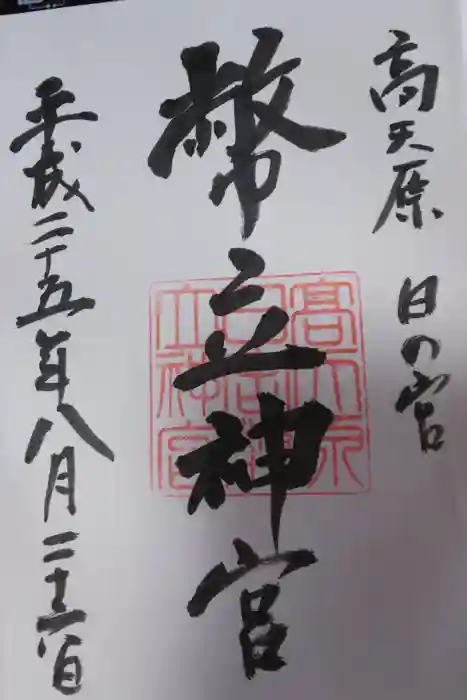 高天原 日の宮
幣立神宮
平成二十五年八月二十六日
高天原
日宮幣
立神宮